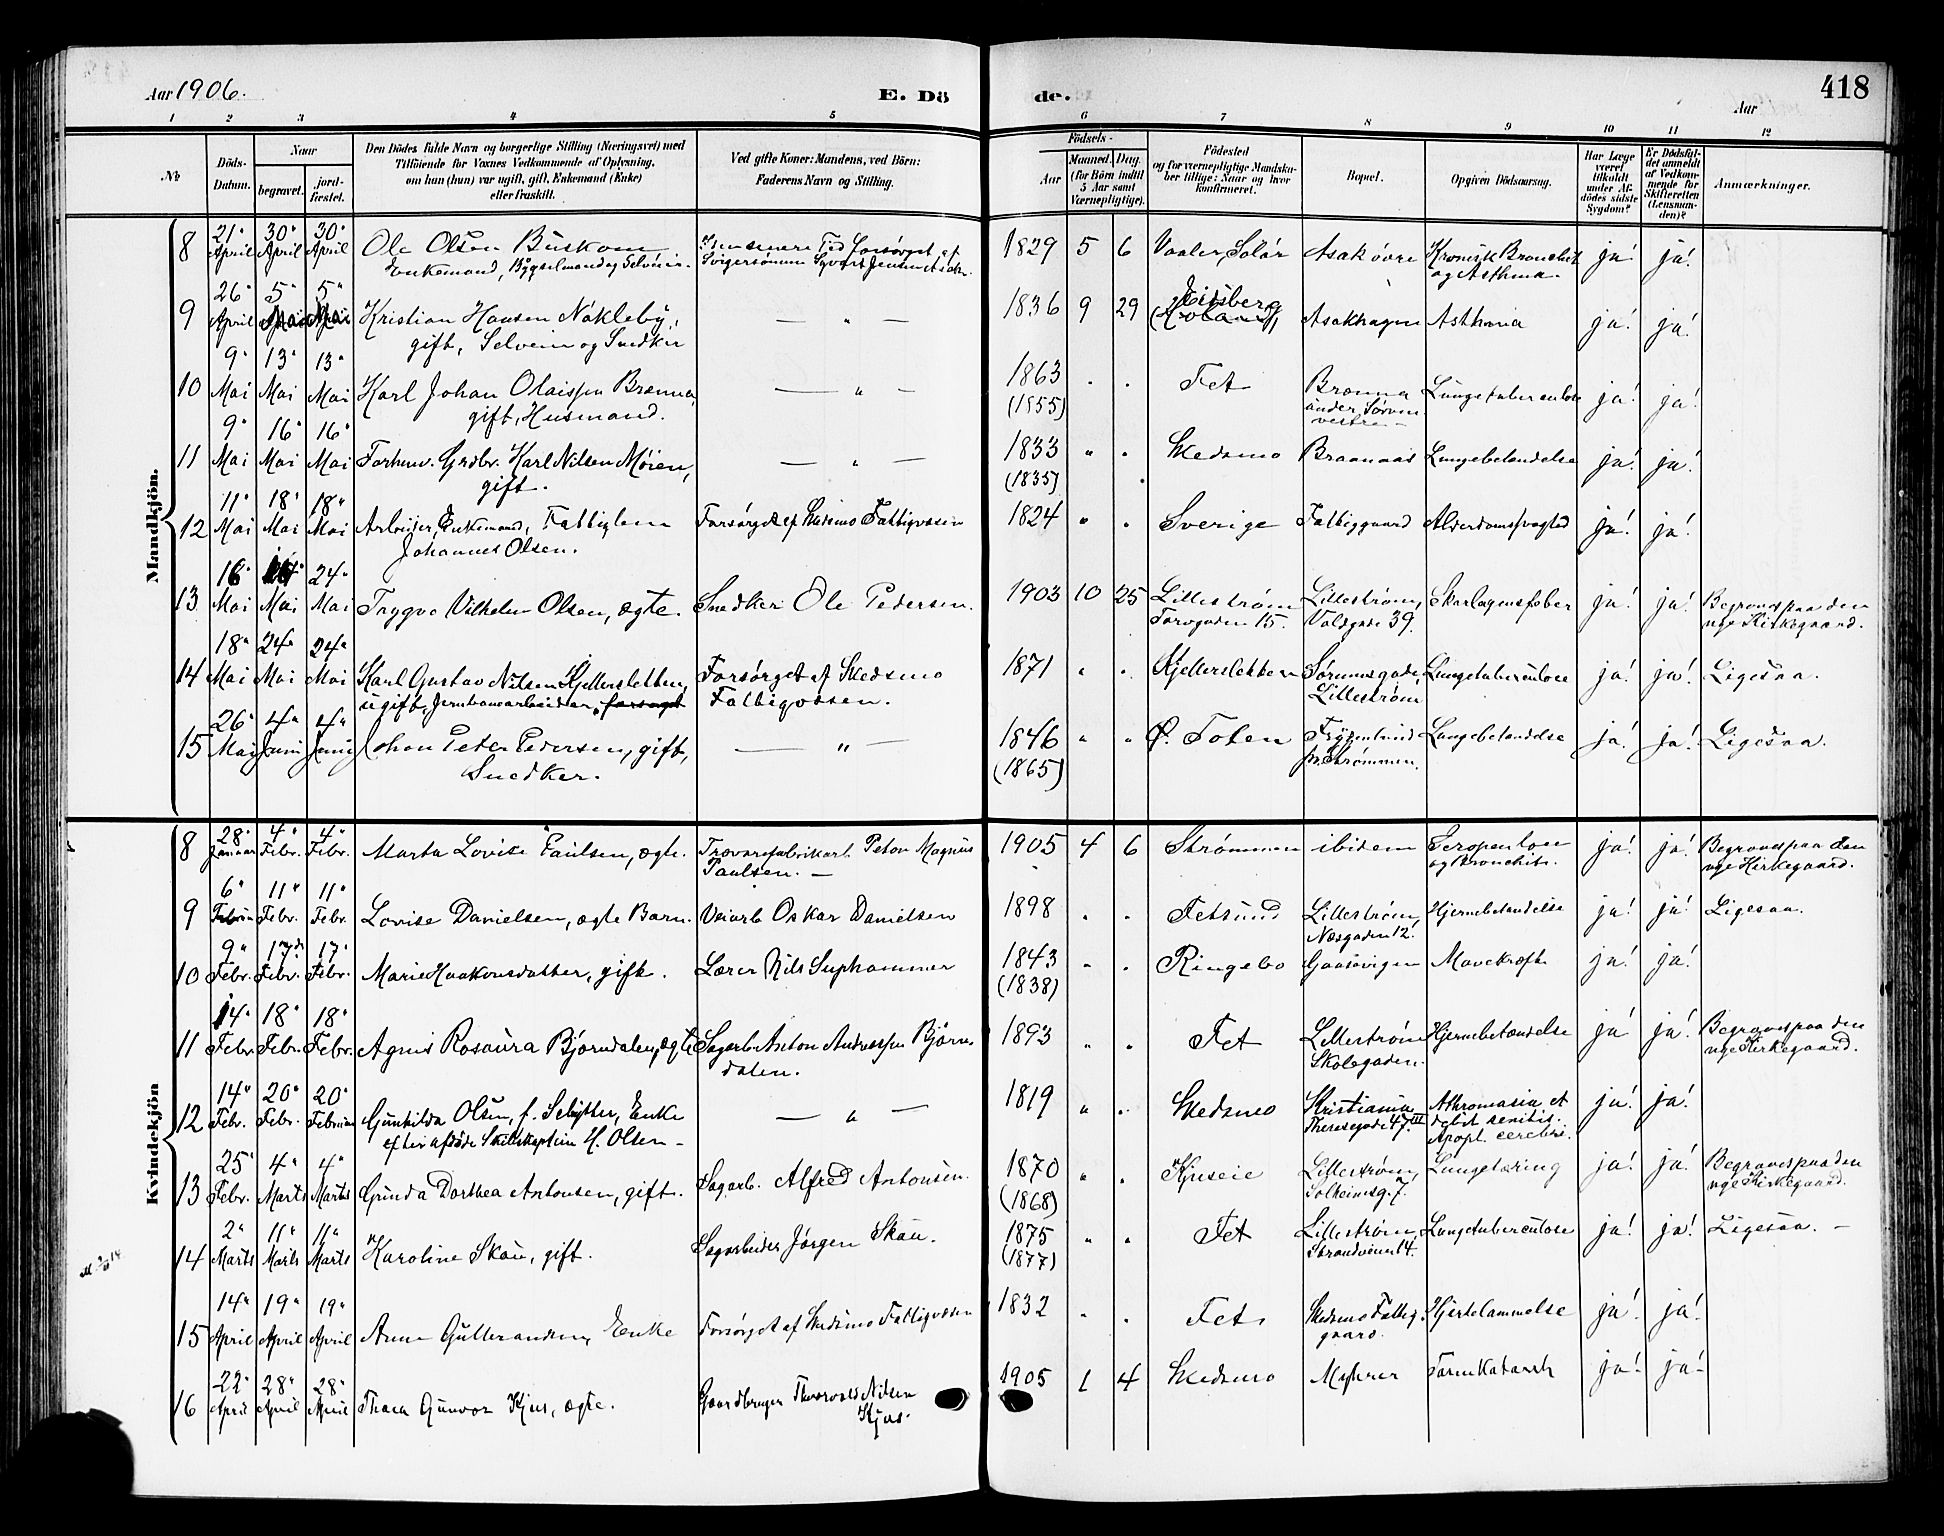 Aar 1906.
E. Dö
de.
Aar
418
1 2 3 4 5 6 7 8 9 10 11 12
No
Döds-Datum.
Naar
begravet.
jord-fæstet.
Den Dödes fulde Navn og borgerlige Stilling (Næringsvei) med
Tilföiende for Voxnes Vedkommende af Oplysning,
om han (hun) var ugift, gift, Enkemand (Enke)
eller fraskilt.
Ved gifte Koner: Mandens, ved Börn:
Faderens Navn og Stilling.
Födsels-
Aar
Maaned. Dag.
(for Börn indtil
5 Aar samt
Værnepligtige).
Födested
og for værnepligtige Mandskaber tillige: Naar og hvor
konfirmeret.
Bopæl.
Opgiven Dödsaarsag.
Har Læge været tilkaldt under Afdödes sidste Sygdom?
Er Dödsfaldet anmeldt af Vedkommende for Skifteretten (Lensmanden)?
Anmærkninger.
Mandkjön.
8 21" April 30" April 30" April Ole Olsen 1829 5 6 Vaaler, Solör Asak övre Kronisk Bronchit ja! ja!
Enkemand, Bygselmand og Selveier og Asthma.
9 26" April 5" Mai 5" Mai Kristian Hansen Nökleby, — " — 1836 9 29 Eidsberg Asakhagen Asthma ja! ja!
gift, Selveier og Snedker
10 9" Mai 13" Mai 13" Mai Karl Johan Olaissen Brænna, — " — 1863 " " Fet Brænna Lungetuberculose ja! ja!
gift, Husmand. (1855) under Sörum vestre
11 9" Mai 16" Mai 16" Mai Forhenv. Grdbr. Karl Nilsen Möien, — " — 1833 " " Skedsmo Braanaas Lungebetændelse ja! ja!
gift. (1835)
12 11" Mai 18" Mai 18" Mai Arbeider, Enkemand, Fattiglem Forsörget af Skedsmo Fattigvæsen 1824 " " Sverige Fattiggaard Alderdomssvaghed ja! ja!
Johannes Olsen.
13 16 Mai 24" Mai 24" Mai Trygve Vilhelm Olsen, ægte. Snedker Ole Pedersen. 1903 10 25 Lilleström Lilleström, Skarlagensfeber ja! ja! Begraves paa den
Torvgaden 15. Voldgade 39. nye Kirkegaard.
14 18" Mai 24" Mai 24" Mai Karl Gustav Nilsen Kjellersletten, Forsörget af Skedsmo 1871 " " Kjellersletten Sörumsgade, Lungetuberculose ja! ja! Ligesaa.
ugift, Jernbanearbeider, forsörget Fattigvæsen. Lilleström
15 26" Mai 4" Juni 4" Juni Johan Peter Pedersen, gift, — " — 1846 " " Ø. Toten Frydenlund Lungebetændelse ja! ja! Ligesaa.
Snedker. (1865) pr. Strömmen.
Kvindekjön
8 28" Januar 4" Febr. 4" Febr. Marta Lovise Paulsen, ægte. Trævarefabrikarb. Peter Magnus 1905 4 6 Strömmen ibidem ja! ja! Begraves paa den
Paulsen. — og Bronchitis. nye Kirkegaard.
9 6" Februar 11" Febr. 11" Febr. Lovise Danielsen, ægte Barn. Veiarb. Oskar Danielsen 1898 " " Fetsund Lilleström, Hjernebetændelse ja! ja! Ligesaa.
Næsgaden 12.
10 9" Febr. 17" Febr. 17" Febr. Marie Haakonsdatter, gift. Lærer Nils Suphammer 1843 " " Ringebo Gaasevigen Mavekræft ja! ja!
(1838)
11 14" Febr. 18" Febr. 18" Febr. Agnes Rosaura Björndalen, ægte Sagarb. Anton Andreassen Björn- 1893 " " Fet Lilleström Hjernebetændelse ja ja! Begraves paa den
dalen. Skolegaden. nye Kirkegaard.
12 14" Febr. 20" Febr. 20" Februar Gunhilda Olsen, f. Schytter, Enke — " — 1819 " " Skedsmo Kristiania Athromasia et ja! ja!
efter afdöde Skibskaptein H. Olsen — Theresegade 47 III debit. senilis.
Apopl. cerebri.
13 25" Febr. 4" Marts 4" Marts Gunda Dorthea Antonsen, gift. Sagarb. Alfred Antonsen. 1870 " " Lilleström, Lungetæring ja! ja! Begraves paa den
(1868) Solheimsg. 7. nye Kirkegaard.
14 2" Marts 11" Marts 11" Marts Karoline Skau, gift. Sagarbeider Jörgen Skau. 1875 " " Fet Lilleström, Lungetuberculose ja! ja! Ligesaa. —
(1877) Strandveien 14.
15 14" April 19" April 19" April Anne Gulbrandsen, Enke Forsörget af Skedsmo Fattigvæsen 1832 " " Fet Skedsmo Fattig- Hjertelammelse ja! ja!
gaard.
16 22" April 28" April 28" April Thora Gunvor Kjus, ægte. Gaardbruger Thorvald Nilsen 1905 1 4 Skedsmo Myhrer Tarmkatarrh ja! ja!
Kjus.